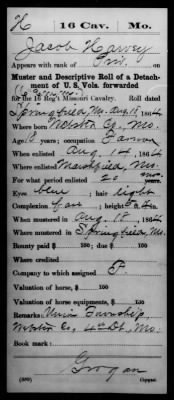 H | 16 Cav. | Mo.
Jacob Harvey
Appears with rank of Priv. on
Muster and Descriptive Roll of a Detach-
ment of U. S. Vols. forwarded
for the 16 Reg't Missouri Cavalry. Roll dated
Springfield, Mo. Aug. 18, 1864.
Where born Webster Co., Mo.
Age 18 years; occupation Farmer
When enlisted Aug. 12, 1864.
Where enlisted Marshfield, Mo.
For what period enlisted 20 mos. years.
Eyes blue; hair light
Complexion fair; height 5 ft. in.
When mustered in Aug. 18, 1864.
Where mustered in Springfield, Mo.
Bounty paid $ 100; due $ 100
Where credited
Company to which assigned P.
Valuation of horse, $ 100
Valuation of horse equipments, $ 100
Remarks: Union Township
Webster Co., 4th Dt., Mo.
Book mark:
Grogan
(339) Copyist.